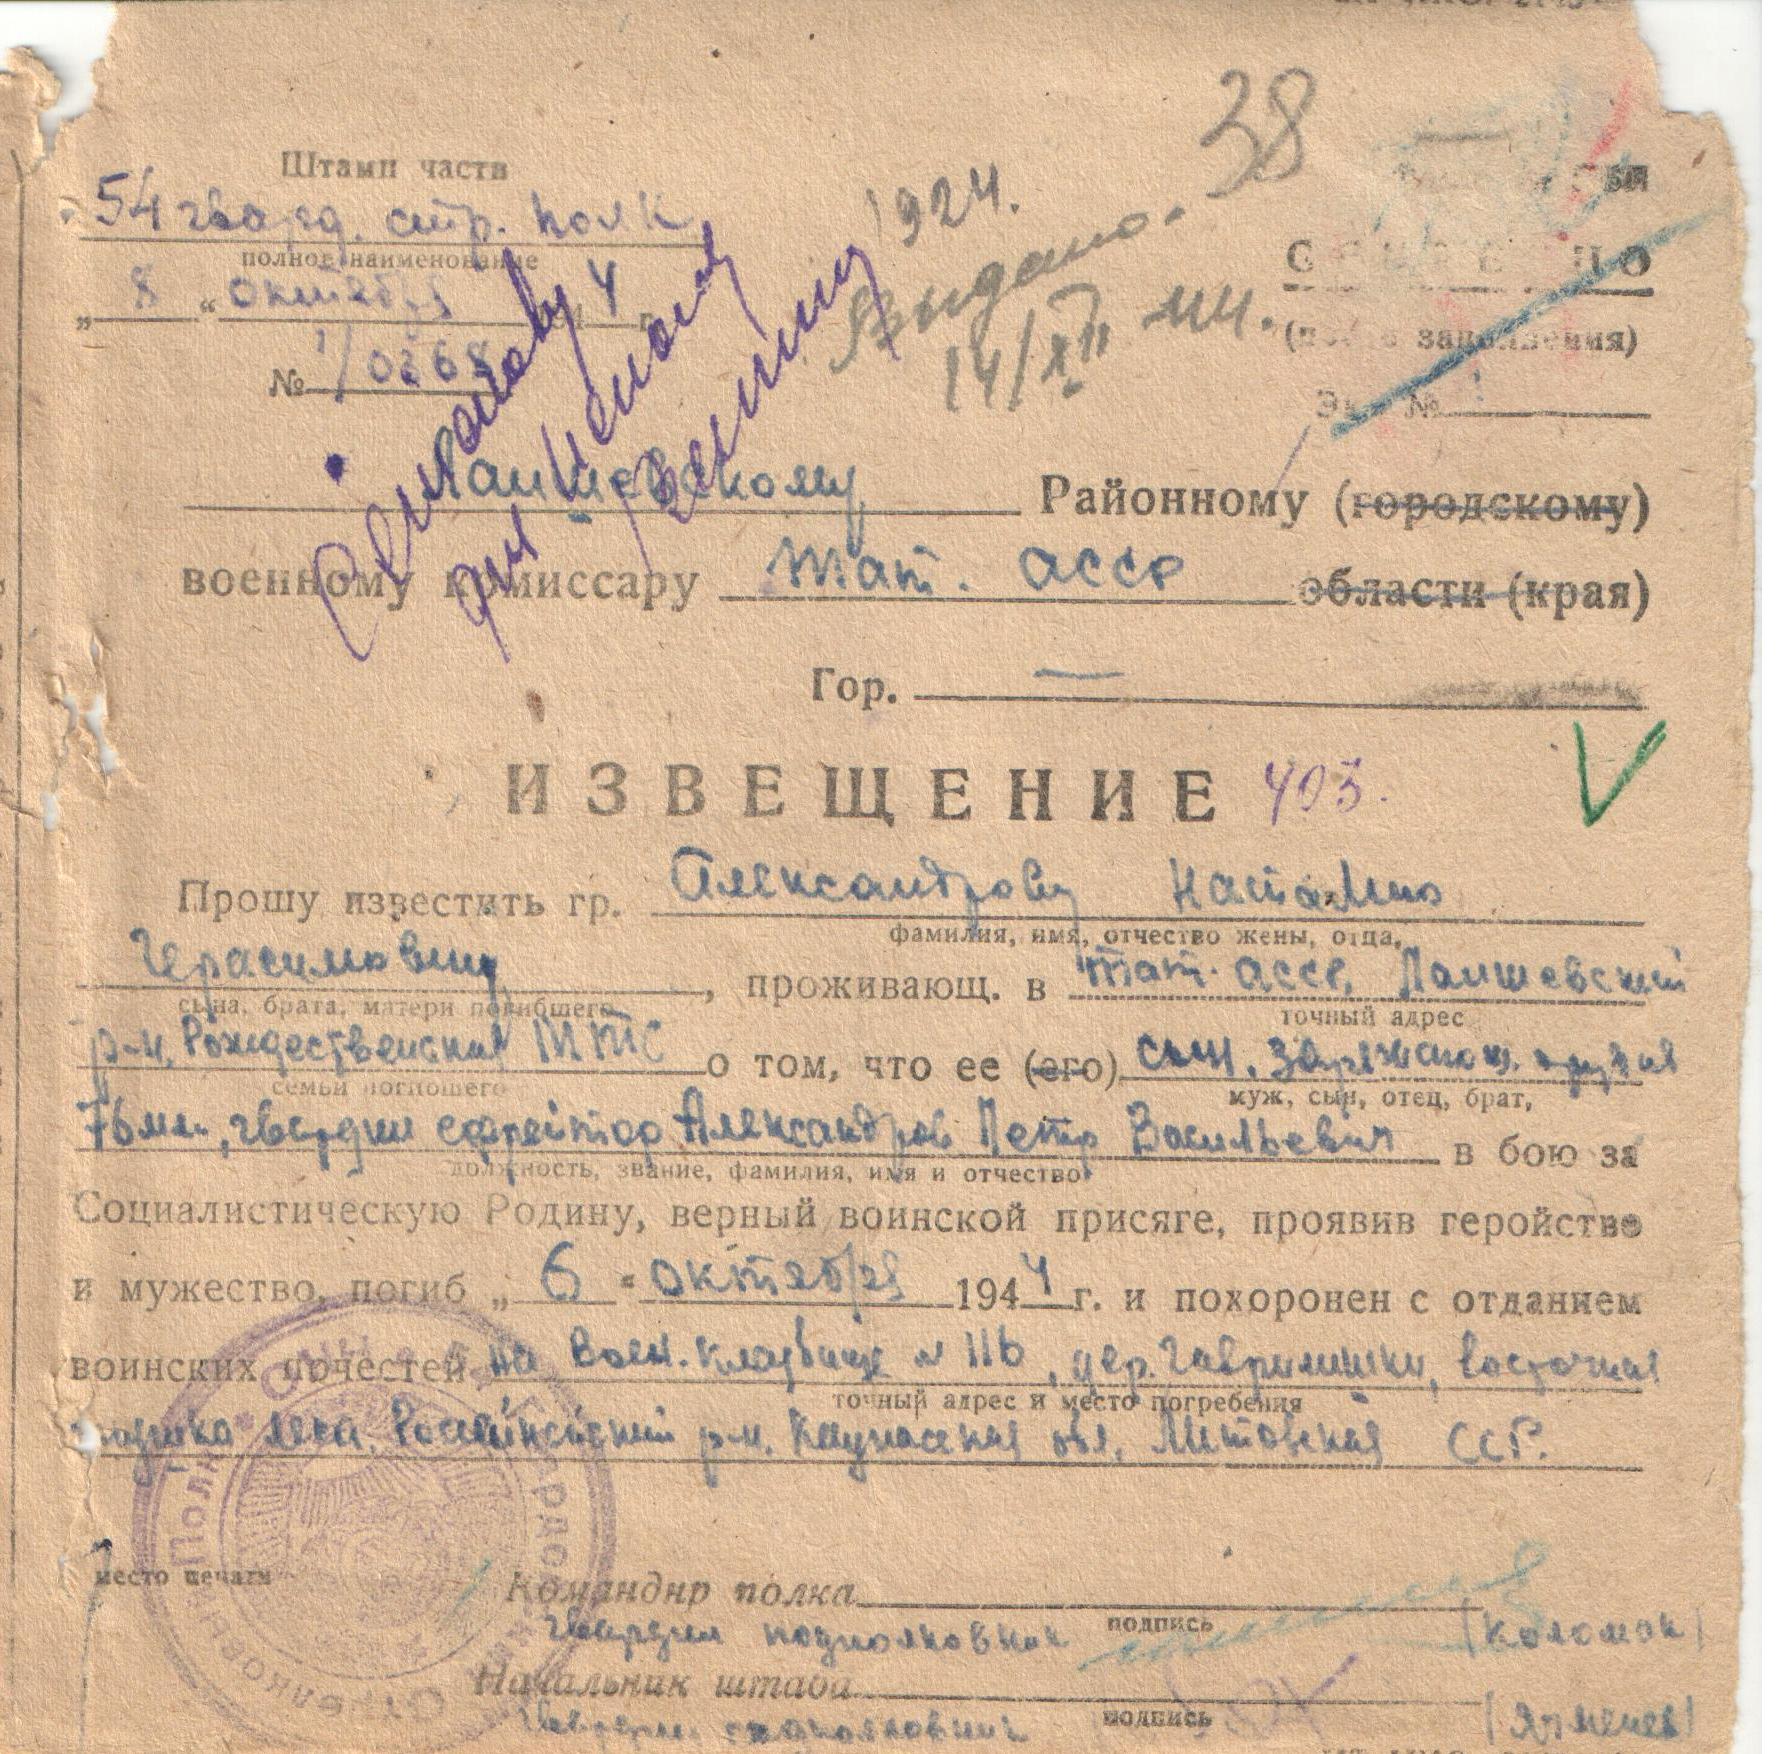 38
Штамп части
54 гвард. стр. полк
полное наименование
„ 8 “ октября 4 г.
№ 1/0268
1924.
Выдано.
14/XII 44.
С НО
заполнения)
№ 1
Лаишевскому Районному (городскому)
военному комиссару Тат. АССР области (края)
Гор. —
ИЗВЕЩЕНИЕ 403.
Прошу известить гр. Александрову Наталию
фамилия, имя, отчество жены, отца,
Герасимовну, проживающ. в Тат. АССР, Лаишевский
сына, брата, матери погибшего
точный адрес
р-н, Рождественская МТС о том, что ее (его) сын,
семьи погибшего
муж, сын, отец, брат,
76 мм, гвардии ефрейтор Александров Петр Васильевич в бою за
должность, звание, фамилия, имя и отчество
Социалистическую Родину, верный воинской присяге, проявив геройство
и мужество, погиб „ 6 “ октября 1944 г. и похоронен с отданием
воинских почестей на воен. кладбище № 116, дер. Гаврилишки, восточная
точный адрес и место погребения
леса, р-н, Каунасская обл, Литовская ССР.
место печати
Командир полка
гвардии подполковник
подпись
(Коломак)
Начальник штаба
подпись
(Яхменев)